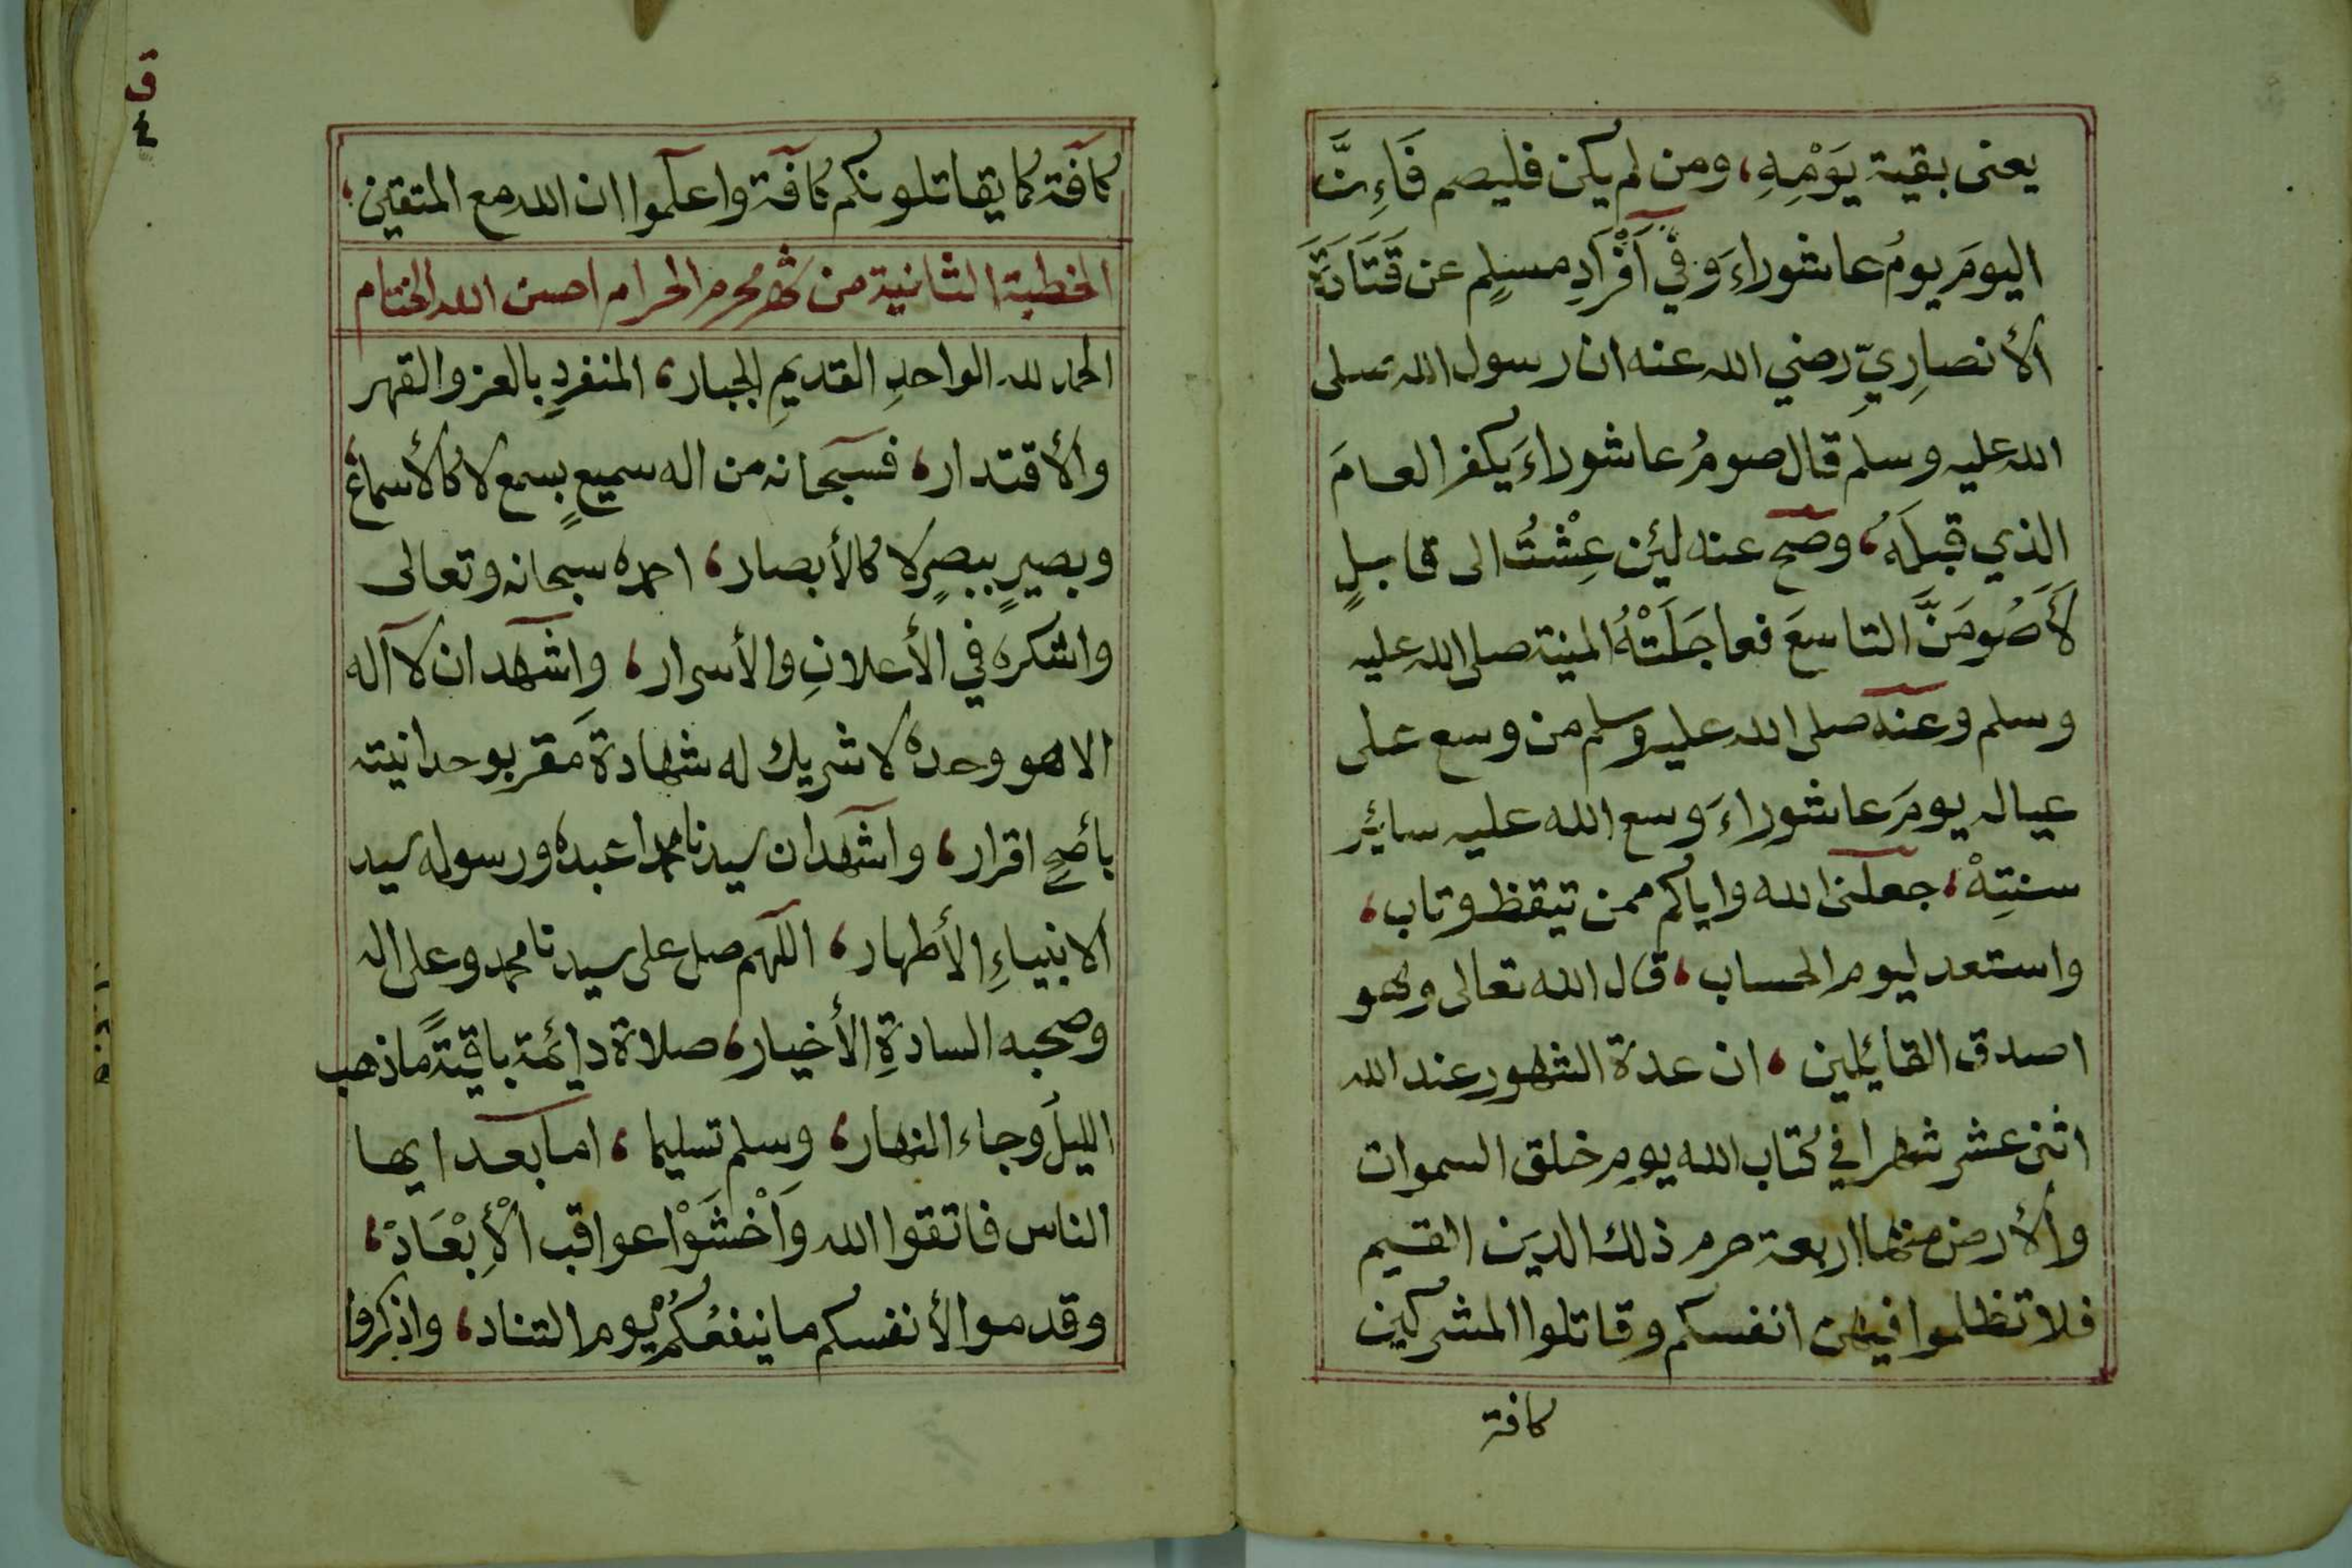 يعنى بقية يَوْمِهِ، ومن لم يكن فليصم فَاءِنَّ
اليومَ يومُ عاشوراءَ وَفي اَفْرَادِ مسلِم عن قَتَادَةَ
الأنصارِيِّ رضي الله عنه ان رسول الله صلى
الله عليه وسلم قال صومُ عاشوراءَ يكفر العامَ
الذي قبلَهُ، وصح عنه لئن عِشْتُ الى قابلٍ
لَأَصُومَنَّ التاسعَ فعاجَلَتْهُ المنية صلى الله عليه
وسلم وعنه صلى الله عليه وسلم من وسع على
عياله يومَ عاشوراءَ وسع الله عليه سايئر
سنتِهْ، جعلنى الله واياكم ممن تيقظ وتاب،
واستعد ليوم الحساب، قال الله تعالى وهو
اصدق القايئلين، ان عدة الشهور عند الله
اثنى عشر شهرا في كتاب الله يوم خلق السموات
والأرض منها اربعة حرم ذلك الدين القيم
فلا تظلموا فيهن انفسكم وقاتلوا المشركين
كافة
ق
٤
كآفة كما يقاتلونكم كآفة واعلموا ان الله مع المتقين،
الخطبة الثانية من شهر محرم الحرام احسن الله الختام
الحمد لله الواحدِ القديمِ الجبار، المنفردِ بالعز والقهر
والأقتدار، فسبحانه من اله سميعٍ بسمع لا كالأسماع،
وبصيرٍ ببصرٍ لا كالأبصار، احمده سبحانه وتعالى
واشكره في الأعلانِ والأسرار، واشهد ان لا آله
الا هو وحده لا شريك له شهادةَ مقر بوحدانيته
بأصحِ اقرار، واشهد ان سيدنا محمدا عبده ورسوله سيد
الانبياءِ الأطهار، اللهم صل على سيدنا محمد وعلى اله
وصحبه السادةِ الأخيار، صلاة دايئمة باقيةً ما ذهب
الليلُ وجاء النهار، وسلم تسليما، اما بعد ايها
الناس فاتقوا الله وَاَخْشَوْا عواقب الْأِبْعَادْ،
وقدموا الأنفسكم ما ينفعُكُمْ يوم التناد، واذكروا